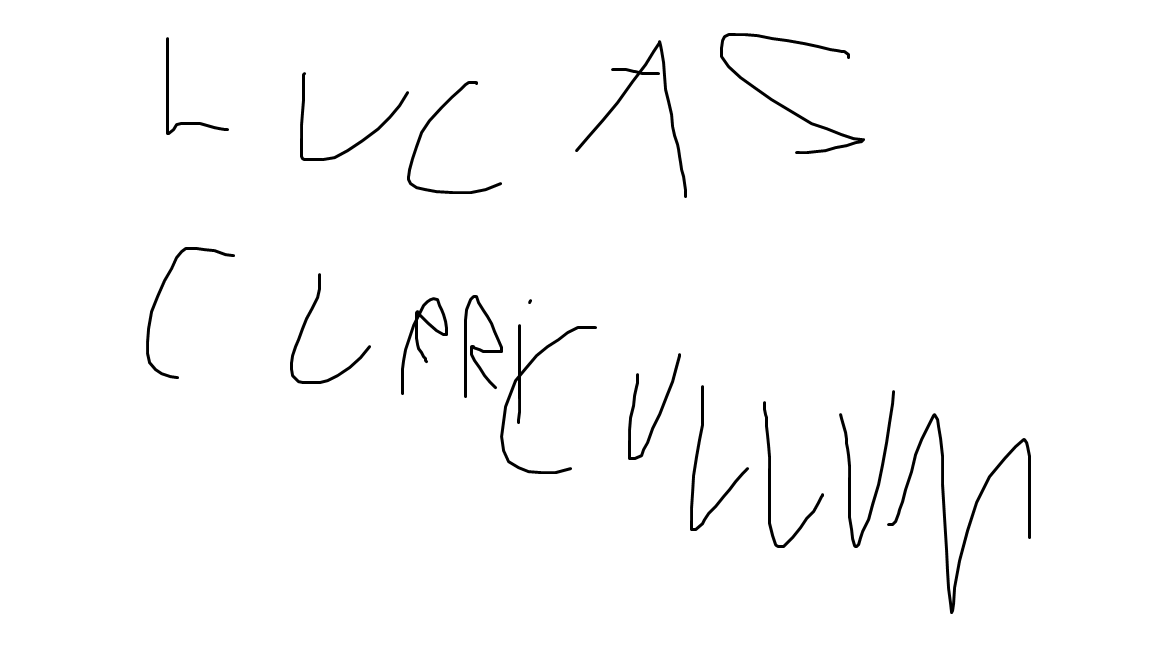 LUCAS
CURRiCULLUM